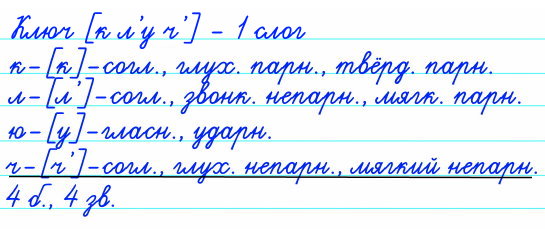 Ключ [к л’у ч’] – 1 слог
к–[к]–согл., глух. парн., твёрд. парн.
л–[л’]–согл., звонк. непарн., мягк. парн.
ю–[у]–гласн., ударн.
ч–[ч’]–согл., глух. непарн., мягкий непарн.
4 б., 4 зв.